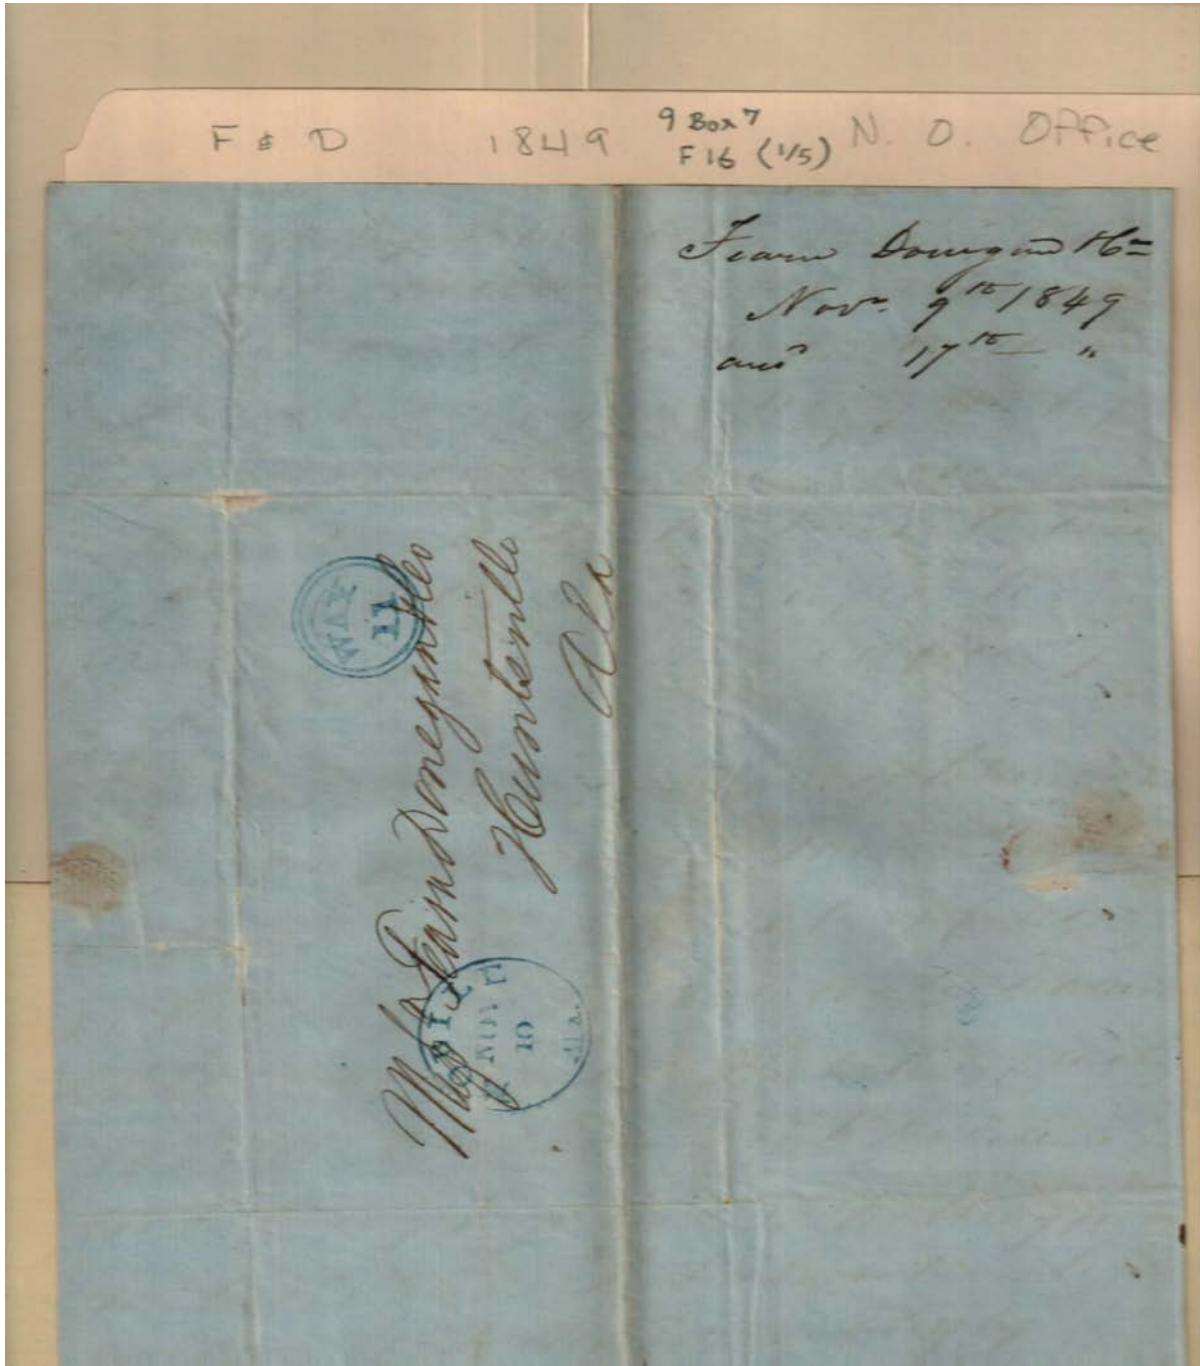 F & D 1849 9 Box 7 N. O. Office
F 16 (1/5)
Fearn Donegan & Co
Novr. 9th 1849
ansd 17th "
WAY
11
Messrs Fearn Donegan & Co
Huntsville
Ala
NOV
10
Ala.